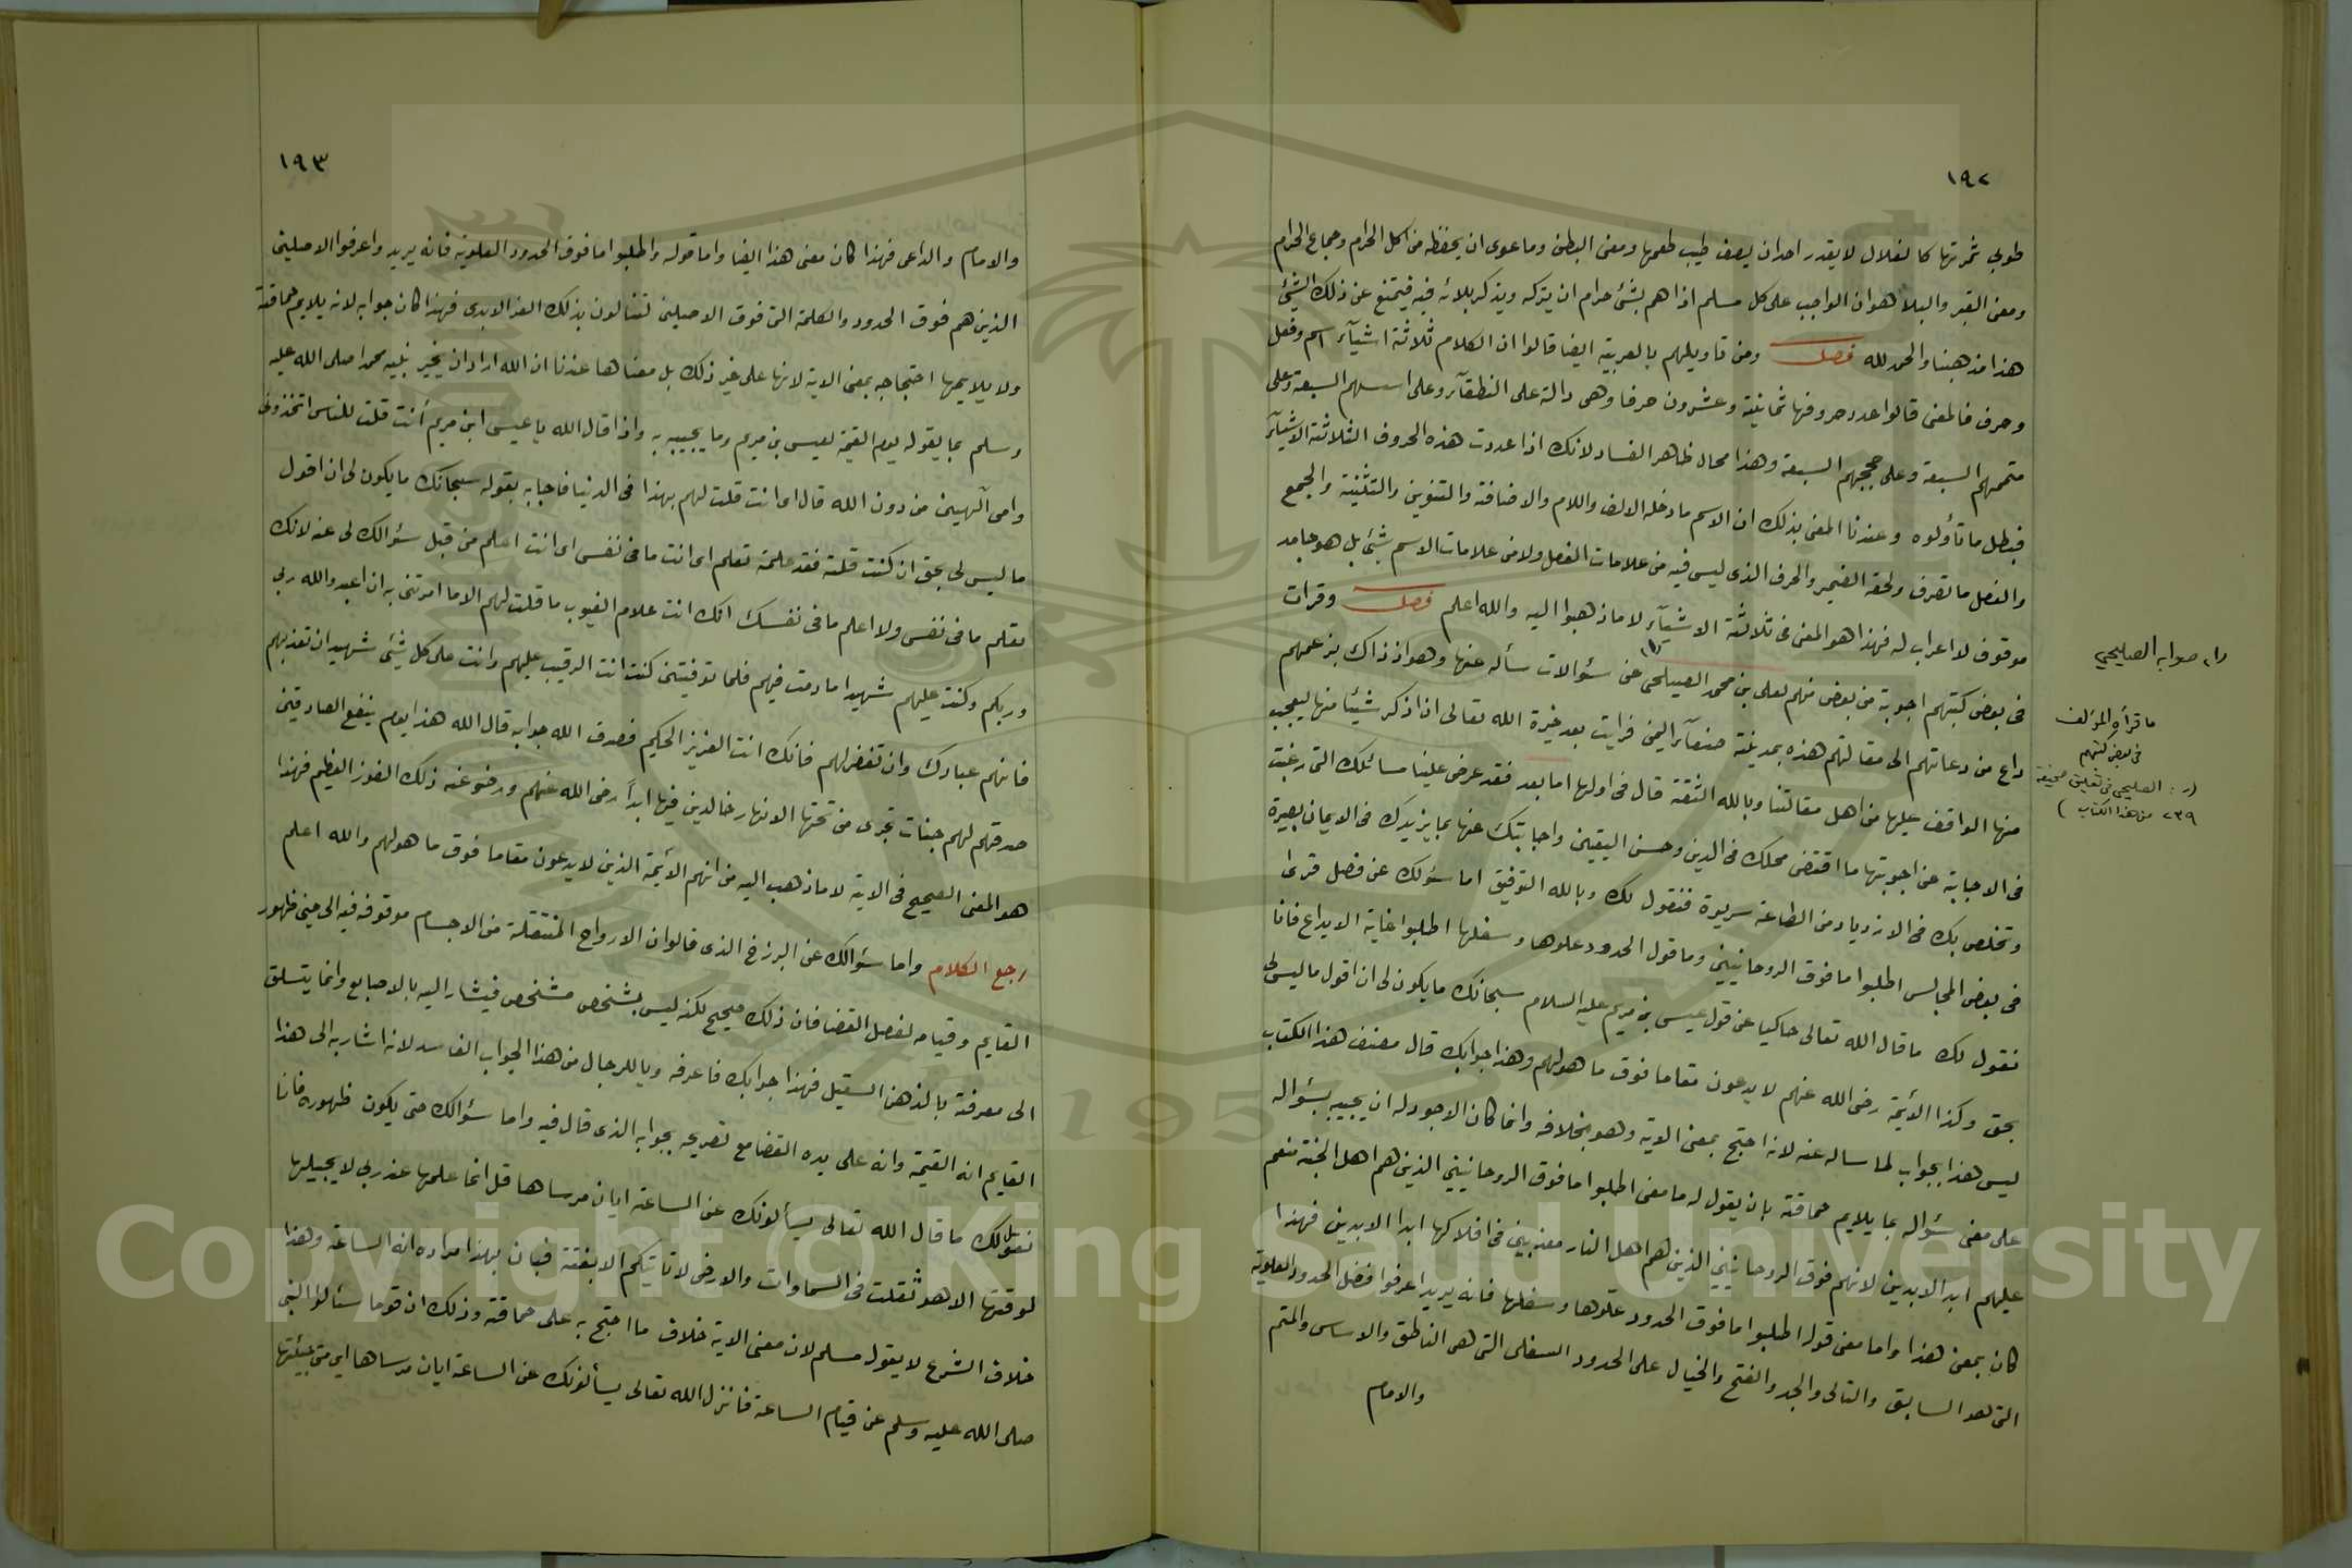 ١٩٢
طوبى ثمرتها كالغلال لا يقدر احد ان يصف طيب طعمها ومعنى البطن وما عوى ان يحفظه من اكل الحرام وجماع الحرام
ومعنى القبر والبلاء هو ان الواجب على كل مسلم اذا هم بشئ حرام ان يتركه ويذكر بلائه فيه فيمتنع عن ذلك الشئ
هذا مذهبنا والحمد لله فصل ومن تاويلهم بالعربية ايضا قالوا ان الكلام ثلاثة اشيآء اسم وفعل
وحرف فالمعنى قالوا عدد حروفها ثمانية وعشرون حرفا وهى دالة على النطقآء وعلى اسسهم السبعة وعلى
متممهم السبعة وعلى حججهم السبعة وهذا محال ظاهر الفساد لانك اذا عددت هذه الحروف الثلاثة الاشيآء
فبطل ما تأولوه وعندنا المعنى بذلك ان الاسم ما دخله الالف واللام والاضافة والتنوين والتثنية والجمع
والفعل ما تصرف ولحقه الضمير والحرف الذى ليس فيه من علامات الفعل ولا من علامات الاسم شئ بل هو جامد
موقوف لا اعراب له فهذا هو المعنى فى ثلاثة الاشيآء لا ما ذهبوا اليه والله اعلم فصل وقرات
فى بعض كتبهم اجوبة من بعض منهم لعلى بن محمد الصيلحى (١) عن سئوالات سأله عنها وهو اذ ذاك بزعمهم
داع من دعاتهم الى مقالتهم هذه بمدينة صنعآء اليمن فرايت بعد خيرة الله تعالى ان اذكر شيئا منها ليعجب
منها الواقف عليها من اهل مقالتنا وبالله الثقة قال فى اولها اما بعد فقد عرض علينا مسائلك التى رغبت
فى الاجابة عن اجوبتها ما اقتضى محلك فى الدين وحسن اليقين واجابتك عنها بما يزيدك فى الايمان بصيرة
وتخلص بك فى الازدياد من الطاعة سريرة فنقول لك وبالله التوفيق اما سئولك عن فصل قرئ
فى بعض المجالس اطلبوا ما فوق الروحانيين وما قول الحدود علوها وسفلها اطلبوا غاية الابداع فانا
نقول لك ما قال الله تعالى حاكيا عن قول عيسى بن مريم عليه السلام سبحانك ما يكون لى ان اقول ما ليس لى
بحق وكذا الأيمة رضى الله عنهم لا يدعون مقاما فوق ما هو لهم وهذا جوابك قال مصنف هذا الكتاب
ليس هذا بجواب لما ساله عنه لانه احتج بمعنى الاية وهو بخلافه وانما كان الاجود له ان يجيبه بسئواله
على معنى سئواله بما يلايم حماقته بان يقول له ما معنى اطلبوا ما فوق الروحانيين الذين هم اهل الجنة منعم
عليهم ابد الابدين لانهم فوق الروحانيين الذين هم اهل النار معذبين فى افلاكها ابدا الابدين فهذا
كان بمعنى هذا واما معنى قوله اطلبوا ما فوق الحدود علوها وسفلها فانه يريد اعرفوا فضل الحدود العلوية
التى هو السابق والتالى والجد والفتح والخيال على الحدود السفلى التى هى الناطق والاساس والمتم
والامام
(١) صوابه الصليحي
ما قرأه المؤلف
فى بعض كتبهم
(ر: الصليحي فى تعليق صحيفة
٢٣٩ من هذا الكتاب)
١٩٣
والامام والداعى فهذا كان معنى هذا ايضا واما قوله واطلبوا ما فوق الحدود العلوية فانه يريد واعرفوا الاصلين
الذين هم فوق الحدود والكلمة التى فوق الاصلين لتنالون بذلك العز الابدى فهذا كان جوابه لانه يلايم حماقته
ولا يلايمها احتجاجه بمعنى الاية لانها على غير ذلك بل معناها عندنا ان الله اراد ان يخبر نبيه محمدا صلى الله عليه
وسلم بما يقوله يوم القيمة لعيسى بن مريم وما يجيبه به واذا قال الله يا عيسى ابن مريم أنت قلت للناس اتخذونى
وامى آلهين من دون الله قال اى انت قلت لهم بهذا فى الدنيا فاجابه بقوله سبحانك ما يكون لى ان اقول
ما ليس لى بحق ان كنت قلته فقد علمته تعلم اى انت ما فى نفسى اى انت اعلم من قبل سئوالك لى عنه لانك
تعلم ما فى نفسى ولا اعلم ما فى نفسك انك انت علام الغيوب ما قلت لهم الا ما امرتنى به ان اعبدوا الله ربى
وربكم وكنت عليهم شهيدا ما دمت فيهم فلما توفيتنى كنت انت الرقيب عليهم وانت على كل شئ شهيد ان تعذبهم
فانهم عبادك وان تغفر لهم فانك انت العزيز الحكيم فصدق الله جوابه قال الله هذا يوم ينفع الصادقين
صدقهم لهم جنات تجرى من تحتها الانهار خالدين فيها ابدآ رضى الله عنهم ورضوا عنه ذلك الفوز العظيم فهذا
هو المعنى الصحيح فى الاية لا ما ذهب اليه من انهم الأيمة الذين لا يدعون مقاما فوق ما هو لهم والله اعلم
رجع الكلام واما سئوالك عن البرزخ الذى قالوا ان الارواح المنتقلة من الاجسام موقوفه فيه الى حين ظهور
القايم وقيامه لفصل القضا فان ذلك صحيح لكنه ليس بشخص مشخص فيشار اليه بالاصابع وانما يتسلق
الى معرفته بالذهن السقيل فهذا جوابك فاعرفه ويا للرجال من هذا الجواب الفاسد لانه اشار به الى هذا
القايم انه القيمة وانه على يده القضا مع تصريحه بجوابه الذى قال فيه واما سئوالك متى يكون ظهوره فانا
نقول لك ما قال الله تعالى يسألونك عن الساعة ايان مرساها قل انما علمها عند ربى لا يجليها
لوقتها الا هو ثقلت فى السماوات والارض لا تاتيكم الا بغتة فبان بهذا مراده انه الساعة وهذا
خلاف الشرع لا يقوله مسلم لان معنى الاية خلاف ما احتج به على حماقته وذلك ان قوما سئالوا النبى
صلى الله عليه وسلم عن قيام الساعة فانزل الله تعالى يسألونك عن الساعة ايان مرساها اى متى
Copyright © King Saud University
195